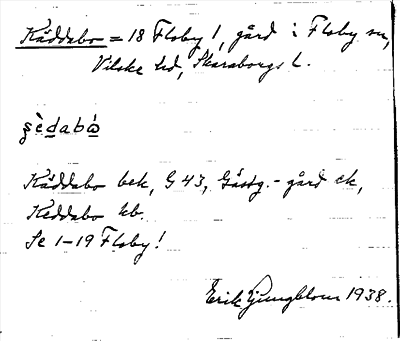 Käddabo = 18 Floby 1, gård i Floby sn,
Vilske hd, Skaraborgs l.
Käddabo bek, G 43, Gästg.-gård ek,
Keddabo kb.
Se 1-19 Floby!
Erik Ljungblom 1938.